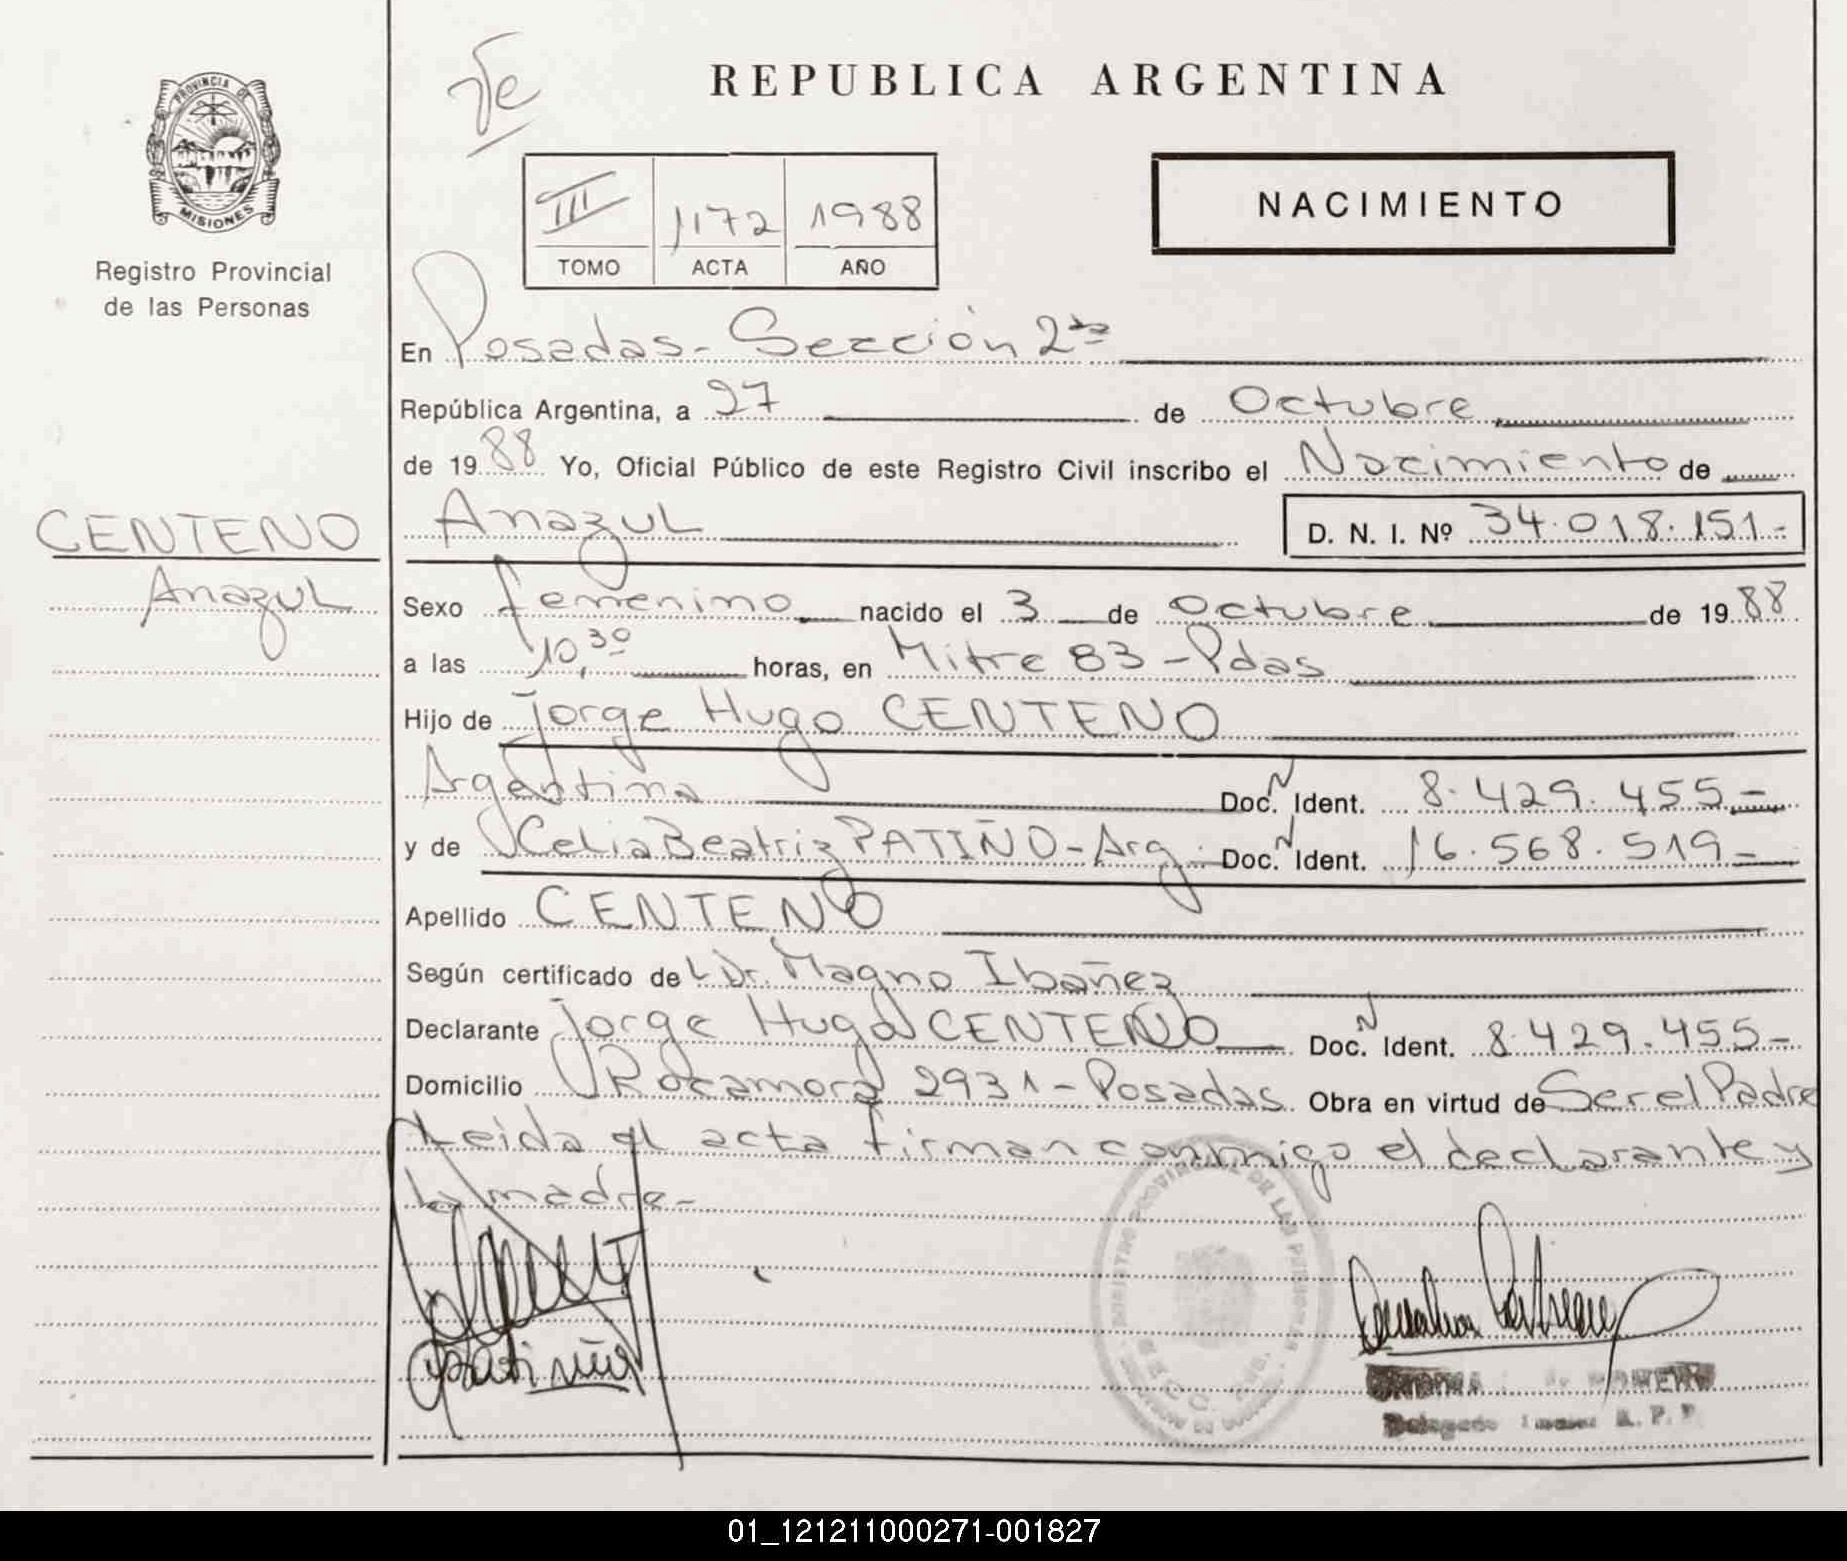 PROVINCIA DE
MISIONES
Registro Provincial
de las Personas
REPUBLICA ARGENTINA
NACIMIENTO
III 1172 1988
TOMO ACTA AÑO
En Posadas - Sección 2da
República Argentina, a 27 de Octubre
de 1988 Yo, Oficial Público de este Registro Civil inscribo el Nacimiento de
CENTENO
Anazul D. N. I. Nº 34.018.151.-
Anazul
Sexo femenino nacido el 3 de Octubre de 1988
a las 10,30 horas, en Mitre 83 - Pdas
Hijo de Jorge Hugo CENTENO
Argentina Doc. N Ident. 8.429.455.-
y de Celia Beatriz PATIÑO - Arg. Doc. N Ident. 16.568.519-
Apellido CENTENO
Según certificado de Dr. Magno Ibañez
Declarante Jorge Hugo CENTENO Doc. N Ident. 8.429.455-
Domicilio Rocamora 2931 - Posadas Obra en virtud de Ser el Padre
Leida el acta firman conmigo el declarante y
la madre-
REGISTRO PROVINCIAL DE LAS PERSONAS
Delegado R. P. P.
01_121211000271-001827